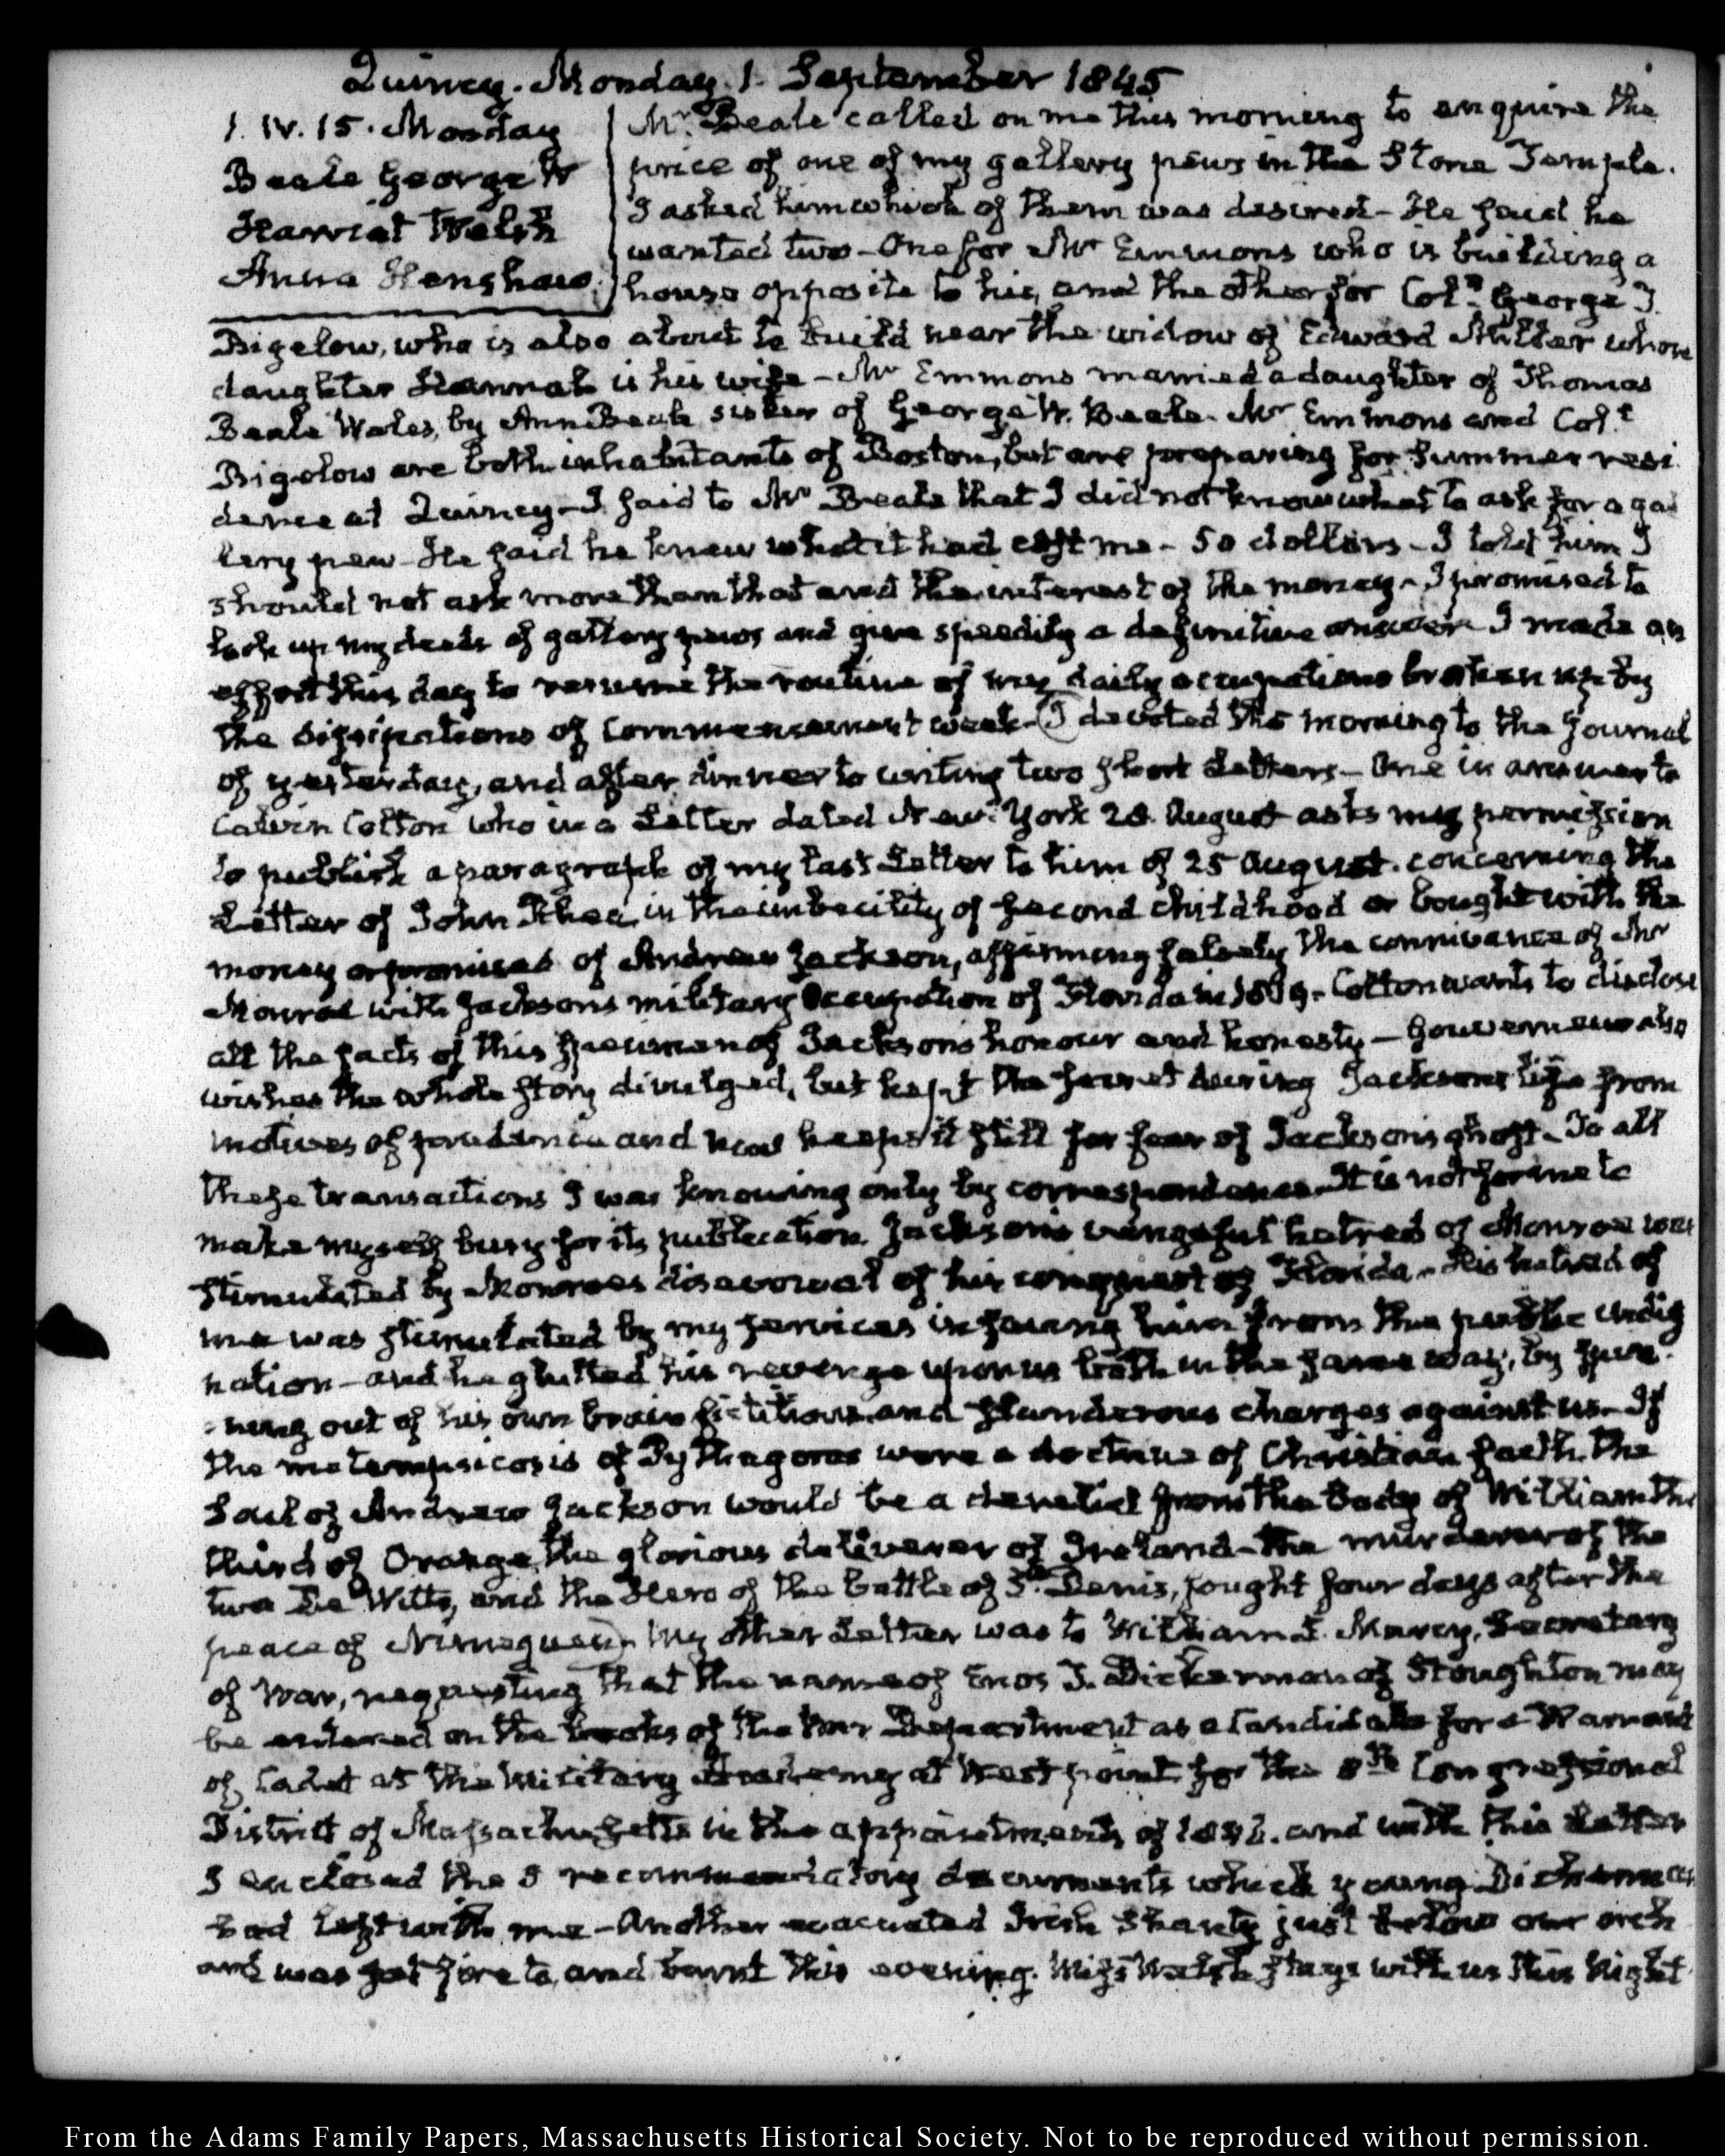 Quincy. Monday 1. September 1845
1. IV. 15. Monday
Beale George W
Harriet Welsh
Anna Henshaw.
Mr. Beale called on me this morning to enquire the
price of one of my gallery pews in the Stone Temple.
I asked him which of them was desired - He said he
wanted two - One for Mr Emmons who is building a
house opposite to his, and the other for Coln. George T.
Bigelow, who is also about to build near the widow of Edward Miller whose
daughter Hannah is his wife - Mr Emmons married a daughter of Thomas
Beale Wales, by Ann Beale sister of George W. Beale. Mr Emmons and Colt
Bigelow are both inhabitants of Boston, but are preparing for summer resi
dence at Quincy - I said to Mr Beale that I did not know what to ask for a gal
lery pew - He said he knew what it had cost me - 50 dollars - I told him I
should not ask more than that and the interest of the money - I promised to
look up my deeds of gallery pews and give speedily a definitive answer I made an
effort this day to resume the routine of my daily occupations broken up by
the dissipations of Commencement week - I devoted the morning to the journal
of yesterday, and after dinner to writing two short Letters - One in answer to
Calvin Colton who in a Letter dated New-York 28. August asks my permission
to publish a paragraph of my last Letter to him of 25 August. concerning the
Letter of John Rhea, in the imbecility of second childhood or bought with the
money or promises of Andrew Jackson, affirming falsely the connivance of Mr
Monroe with Jacksons military occupation of Florida in - Colton wants to disclose
all the facts of this specimen of Jackson's honour and honesty - Gouverneur also
wishes the whole story divulged, but kept the secret during Jacksons life from
motives of prudence and now keeps it still for fear of Jackson's ghost - To all
these transactions I was knowing only by correspondence. It is not for me to
make myself busy for its publication. Jackson's vengeful hatred of Monroe was
stimulated by Monroes disavowal of his conquest of Florida - His hatred of
me was stimulated by my services in saving him from the public indig
nation - and he glutted his revenge upon us both in the same way, by spin-
-ning out of his own brain fictitious and slanderous charges against us - If
the metempsicosis of Pythagoras were a doctrine of Christian faith. the
Soul of Andrew Jackson would be a derelict from the body of William the
third of Orange, the glorious deliverer of Ireland - the murderer of the
two De Witts, and the Hero of the battle of St. Denis, fought four days after the
peace of Nimeguen. My other Letter was to William L. Marcy, Secretary
of War, requesting that the name of Enos T. Dickerman of Stoughton may
be entered on the books of the War Department as a Candidate for a Warrant
of Cadet at the Military Academy at West point for the 8th Congressional
District of Massachusetts in the appointments of 1846. and with this Letter
I enclosed the 5 recommendatory documents which young Dickerman
had left with me - Another evacuated Irish Shanty just below our orch
ard was set fire to, and burnt this evening. Miss Welsh stays with us this night
From the Adams Family Papers, Massachusetts Historical Society. Not to be reproduced without permission.